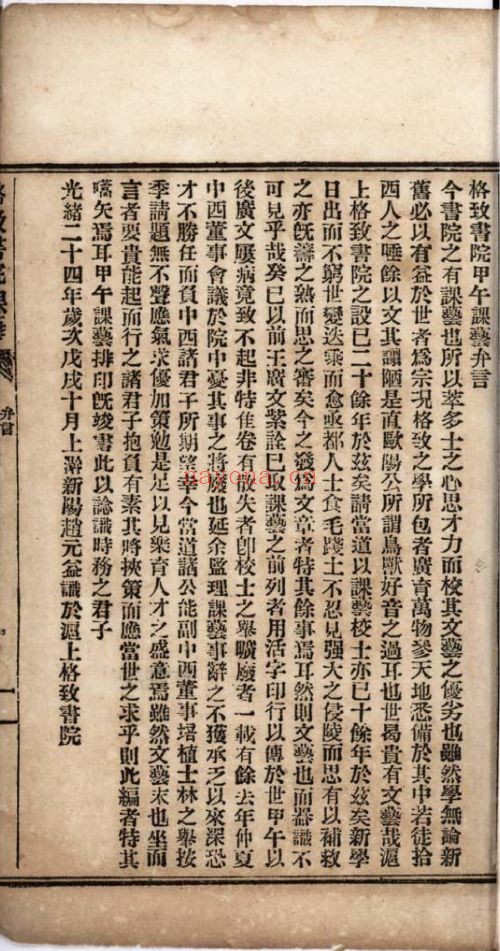 格致書院甲午課藝弁言
今書院之有課藝也所以萃多士之心思才力而校其文藝之優劣也雖然學無論新
舊必以有益於世者為宗現格致之學所包者廣育萬物參天地悉備於其中若徒拾
西人之唾餘以文其譾陋是直歐陽公所謂鳥獸好音之過耳也世曷貴有文藝哉滬
上格致書院之設已二十餘年於茲矣請當道以課藝校士亦已十餘年於茲矣新學
日出而不窮世變迭乘而愈亟都人士食毛踐土不忍見强大之侵陵而思有以補救
之亦旣籌之熟而思之審矣今之發為文章者特其餘事焉耳然則文藝也而器識不
可見乎哉癸巳以前王廣文紫詮已取課藝之前列者用活字印行以傳於世甲午以
後廣文屢病竟致不起非特佳卷有散失者卽校士之舉曠廢者一載有餘去年仲夏
中西董事會議於院中憂其事之將廢也延余監理課藝事辭之不獲承乏以來深恐
才不勝任而負中西諸君子所期望幸今當道諸公能副中西董事培植士林之舉按
季請題無不聲應氣求優加策勉是足以見樂育人才之盛意焉雖然文藝末也坐而
言者要貴能起而行之諸君子抱負有素其將挾策而應當世之求乎則此編者特其
嚆矢焉耳甲午課藝排印旣竣書此以諗識時務之君子
光緒二十四年歲次戊戌十月上澣新陽趙元益識於滬上格致書院
格致書院課藝
弁言
一